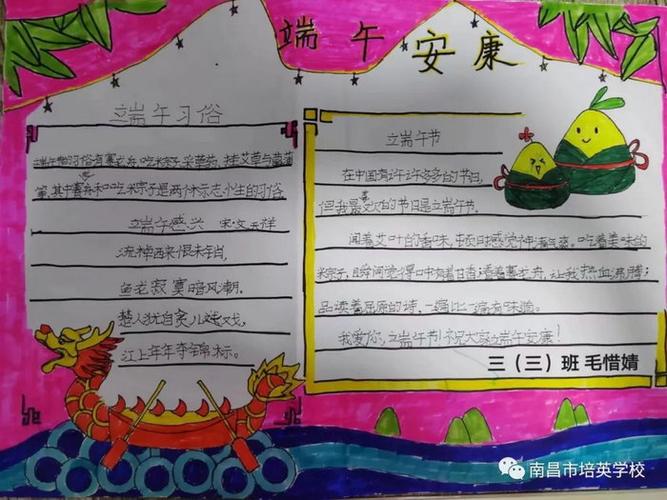 端午安康
端午习俗
端午节的习俗有赛龙舟、吃粽子、采草药、挂艾草与菖蒲
等,其中赛龙舟和吃粽子是两个标志小生的习俗。
端午感兴 宋·文天祥
流棹西来恨未销,
鱼龙寂寞暗风潮。
楚人犹自贪儿戏,
江上年年夺锦标。
端午节
在中国有许许多多的节日,
但我最喜欢的节日是端午节。
闻着艾叶的香味,顿时感觉神清气爽。吃着美味的
粽子,瞬间觉得口中有着甘香;看着赛龙舟,让我热血沸腾;
品读着屈原的诗,一篇比一篇有味道。
我爱你,端午节!祝大家端午安康!
三（三）班 毛惜婧
南昌市培英学校